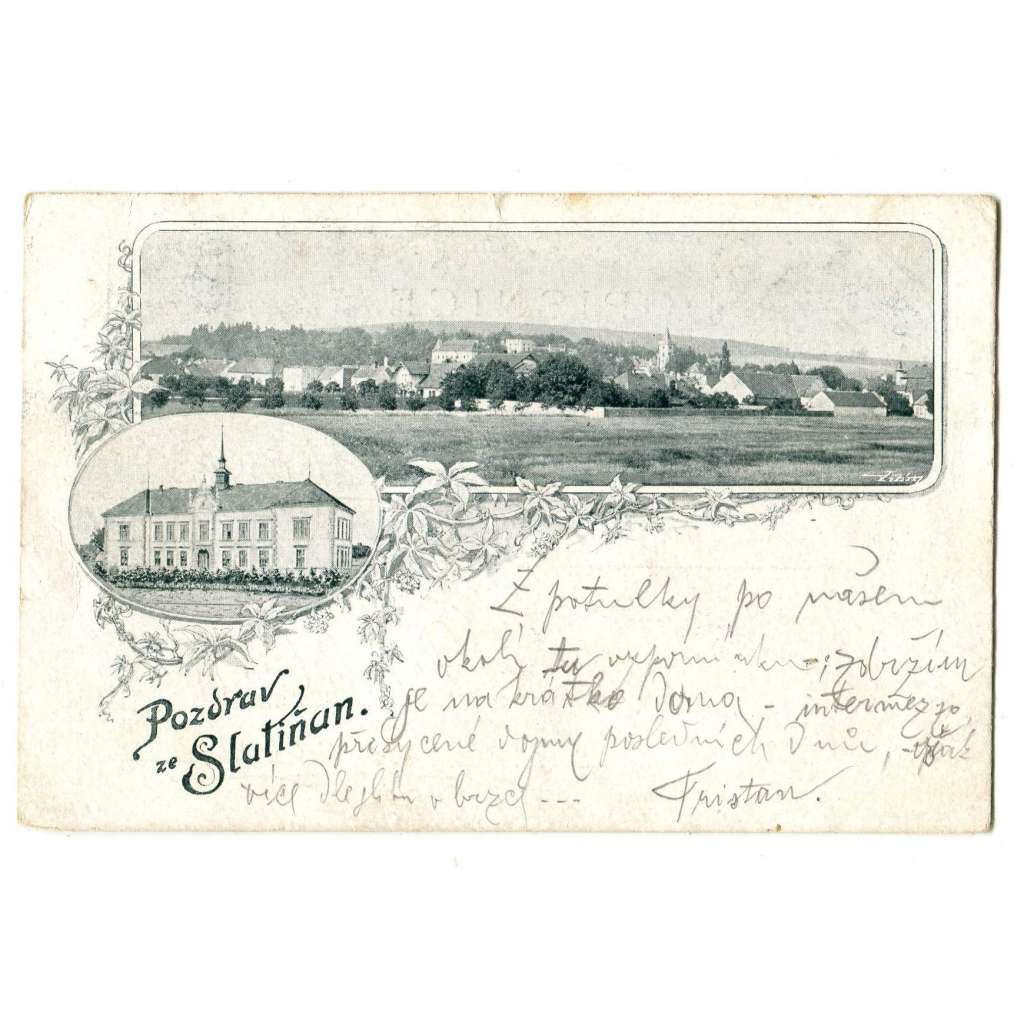 Pozdrav
ze Slatiňan.
Z potulky po našem
okolí tu vzpomínku -;
je na krátko doma - intermezzo,
přesycené dojmy posledních dnů, - však
více v brzce ---
Tristan.